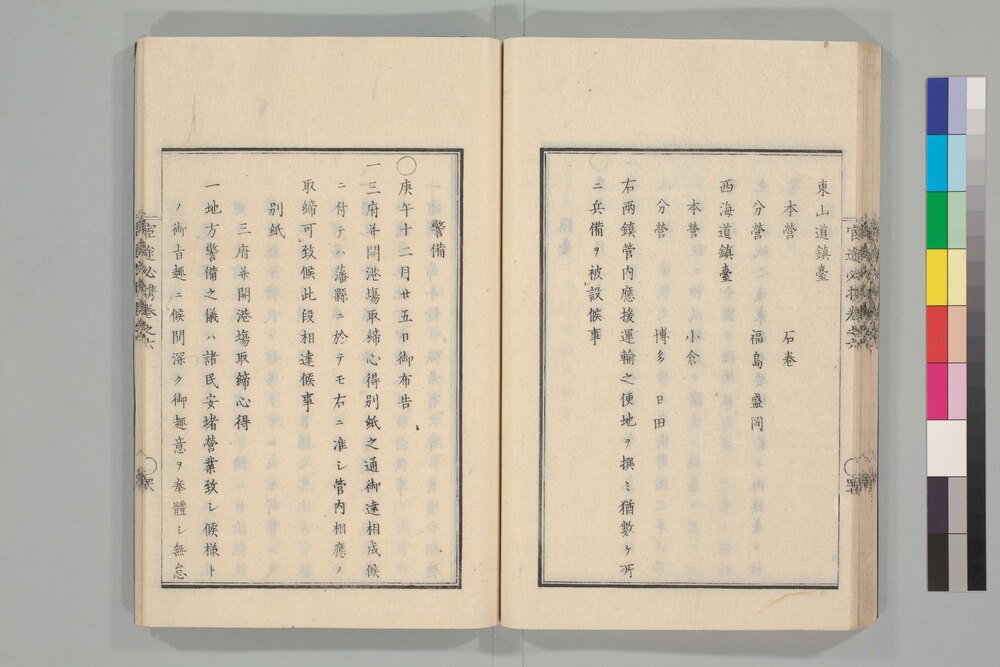 東山道鎮臺
本營　石巻
分營　福島盛岡
西海道鎮臺
本營　小倉
分營　博多日田
右兩鎮管内應援運輸之便地ヲ撰ミ猶數ケ所
ニ兵備ヲ被設候事
警備
〇庚午十二月廿五日御布告
一三府并開港場取締心得別紙之通御達相成候
ニ付テハ藩縣ニ於テモ右ニ准シ管内相應ノ
取締可致候此段相達候事
別紙
三府并開港場取締心得
一地方警備之儀ハ諸民安堵營業致シ候樣ト
ノ御旨趣ニ候間深ク御趣意ヲ奉體シ無怠
官途必携巻之六